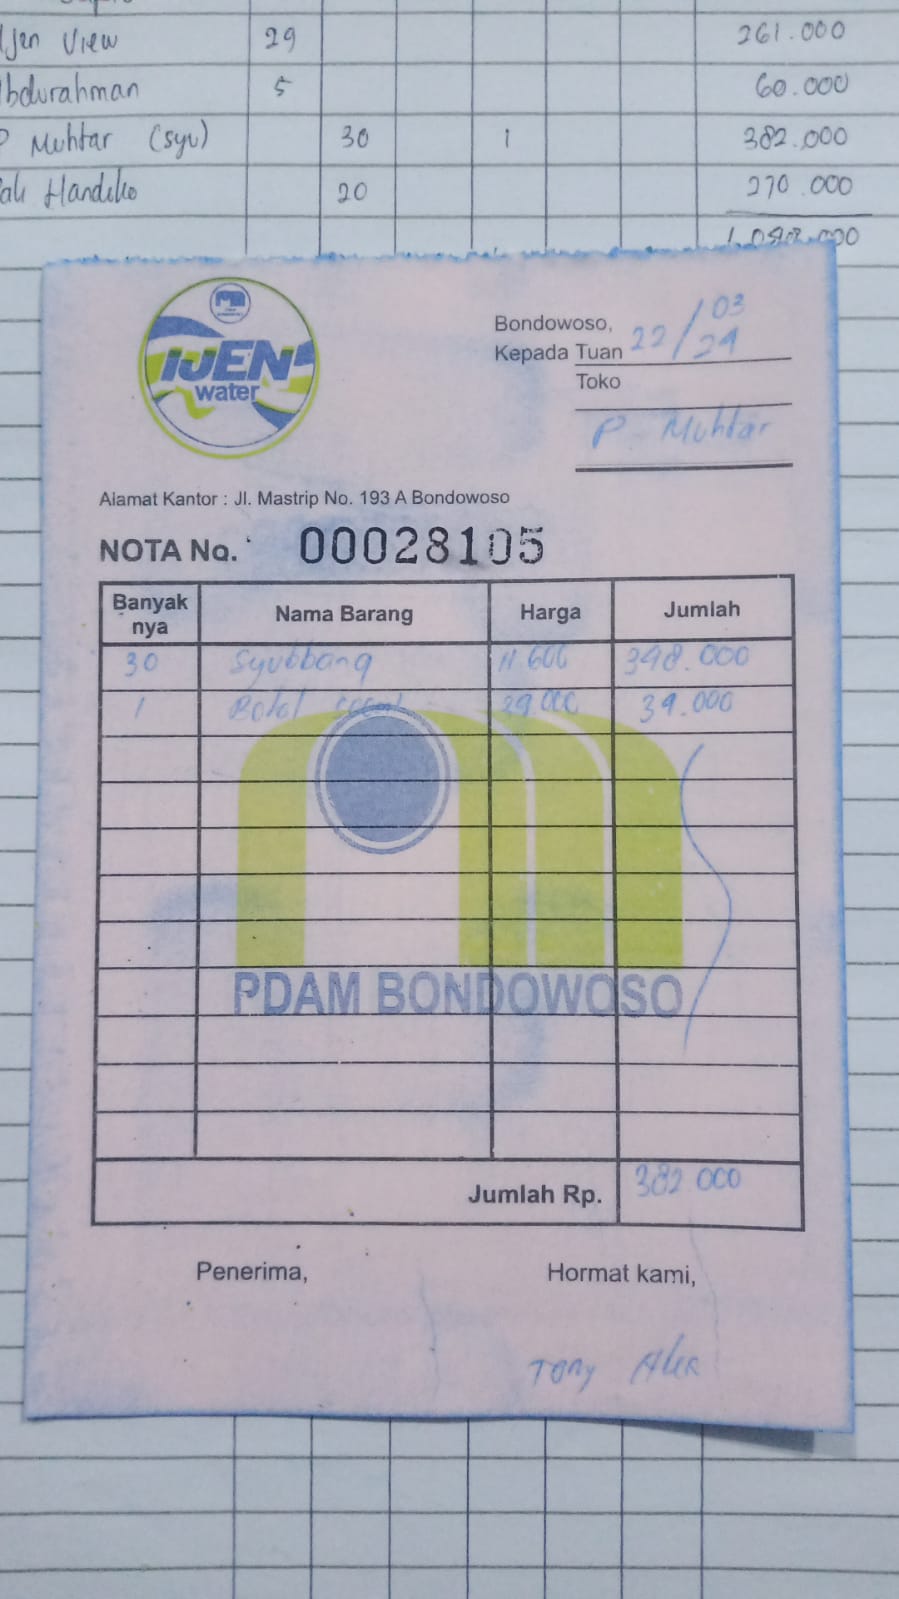 Ijen View 29 261.000
Abdurahman 5 60.000
P Muhtar (syu) 30 1 382.000
Pak Handiko 20 270.000
IJEN
water
Bondowoso, 22/03/24
Kepada Tuan
Toko
P. Muhtar
Alamat Kantor : Jl. Mastrip No. 193 A Bondowoso
NOTA No. 00028105
Banyak nya Nama Barang Harga Jumlah
30 Syubbang 11.600 348.000
1 Botol 39.000 39.000
PDAM BONDOWOSO
Jumlah Rp. 382.000
Penerima, Hormat kami,
Tony